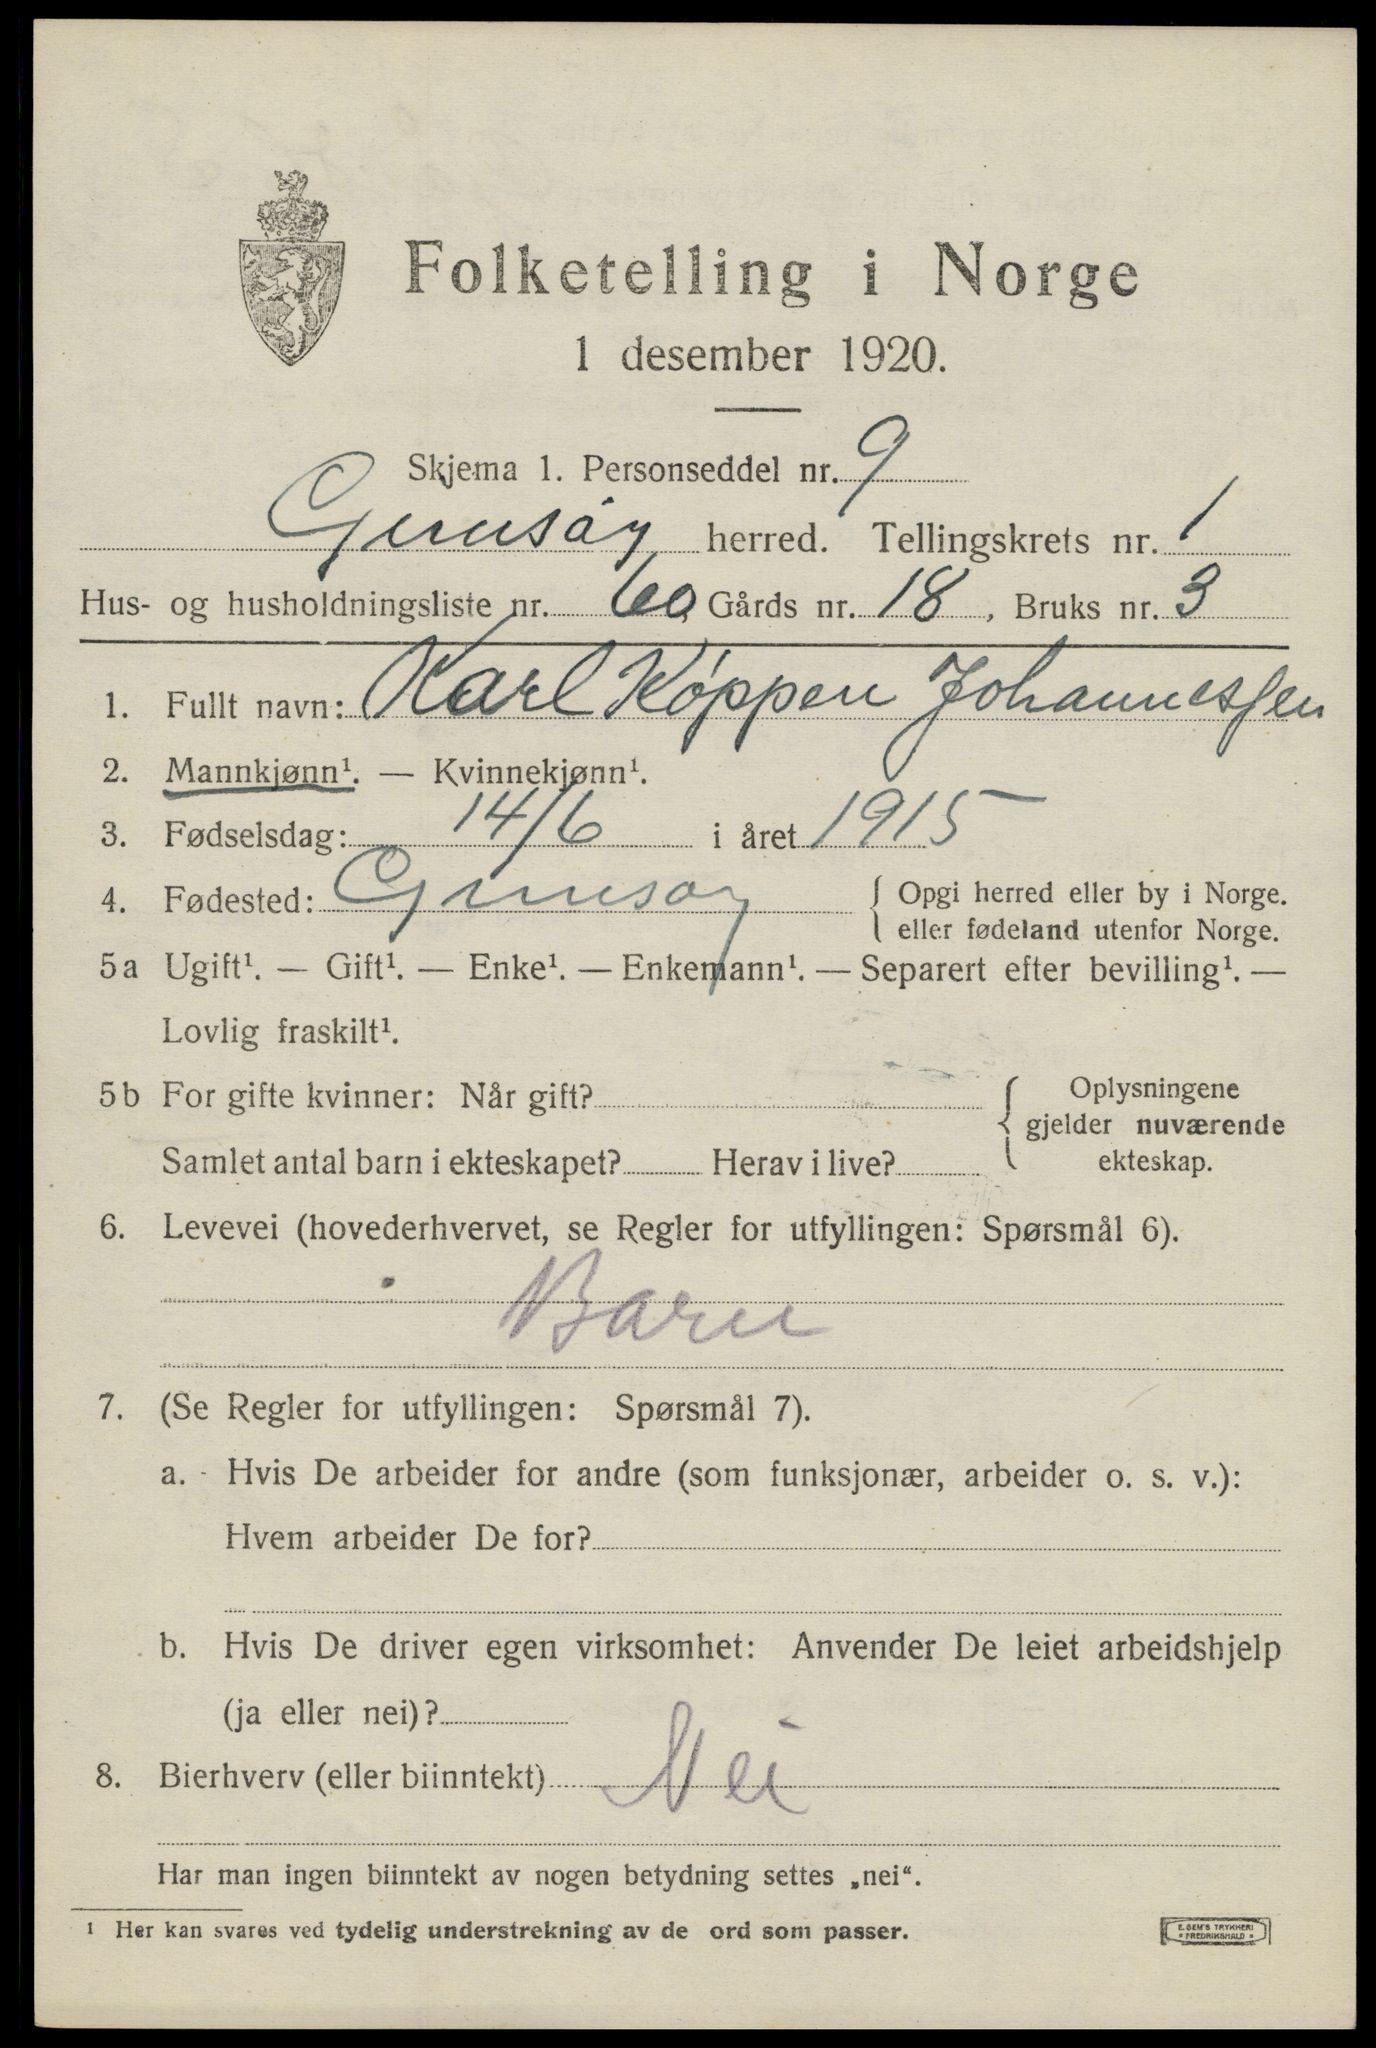 Folketelling i Norge
1 desember 1920.
Skjema 1. Personseddel nr. 9
Gimsøy herred. Tellingskrets nr. 1
Hus- og husholdningsliste nr. 60, Gårds nr. 18, Bruks nr. 3
1. Fullt navn: Karl Køppen Johannessen
2. Mannkjønn¹. — Kvinnekjønn¹.
3. Fødselsdag: 14/6 i året 1915
4. Fødested: Gimsøy { Opgi herred eller by i Norge.
eller fødeland utenfor Norge.
5a Ugift¹. — Gift¹. — Enke¹. — Enkemann¹. — Separert efter bevilling¹. —
Lovlig fraskilt¹.
5b For gifte kvinner: Når gift? { Oplysningene
gjelder nuværende
Samlet antal barn i ekteskapet? Herav i live? ekteskap.
6. Levevei (hovederhvervet, se Regler for utfyllingen: Spørsmål 6).
Barn
7. (Se Regler for utfyllingen: Spørsmål 7).
a. Hvis De arbeider for andre (som funksjonær, arbeider o. s. v.):
Hvem arbeider De for?
b. Hvis De driver egen virksomhet: Anvender De leiet arbeidshjelp
(ja eller nei)?
8. Bierhverv (eller biinntekt) Nei
Har man ingen biinntekt av nogen betydning settes „nei“.
¹ Her kan svares ved tydelig understrekning av de ord som passer.
E. SEM'S TRYKKERI
• FREDRIKSHALD •